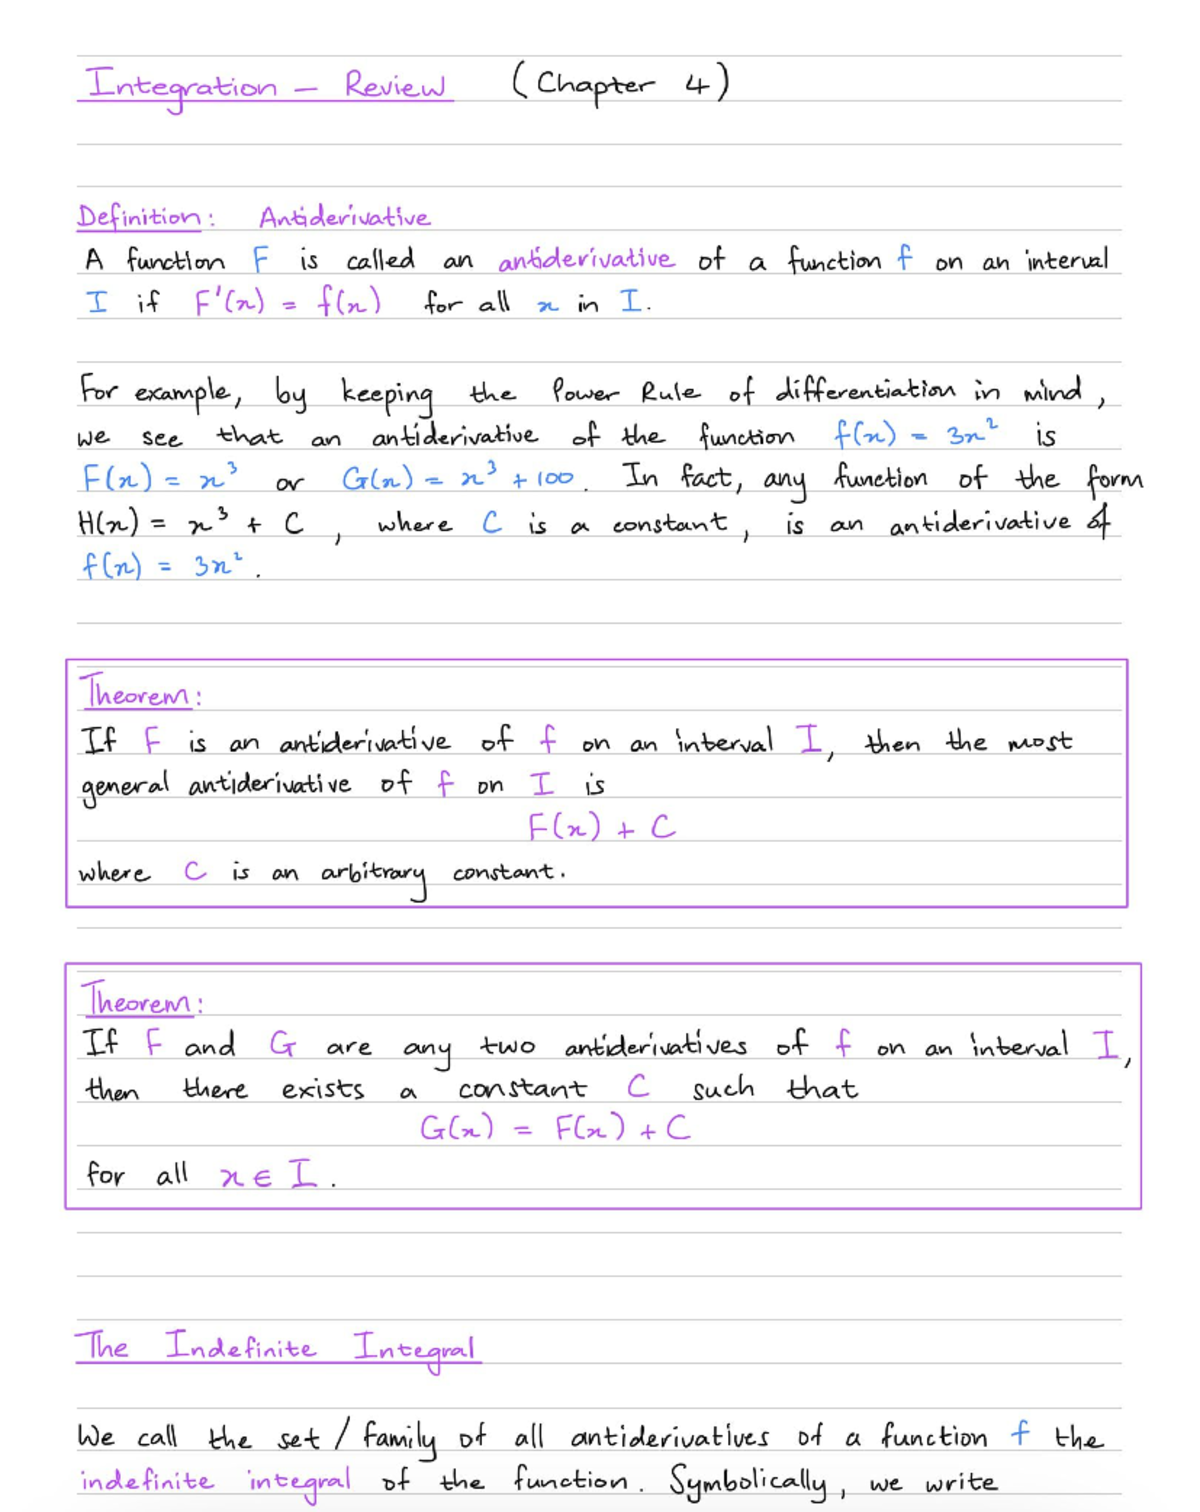 Integration – Review (Chapter 4)
Definition: Antiderivative
A function F is called an antiderivative of a function f on an interval
I if F'(x) = f(x) for all x in I.
For example, by keeping the Power Rule of differentiation in mind,
we see that an antiderivative of the function f(x) = 3x² is
F(x) = x³ or G(x) = x³ + 100. In fact, any function of the form
H(x) = x³ + C, where C is a constant, is an antiderivative of
f(x) = 3x².
Theorem:
If F is an antiderivative of f on an interval I, then the most
general antiderivative of f on I is
F(x) + C
where C is an arbitrary constant.
Theorem:
If F and G are any two antiderivatives of f on an interval I,
then there exists a constant C such that
G(x) = F(x) + C
for all x ∈ I.
The Indefinite Integral
We call the set / family of all antiderivatives of a function f the
indefinite integral of the function. Symbolically, we write